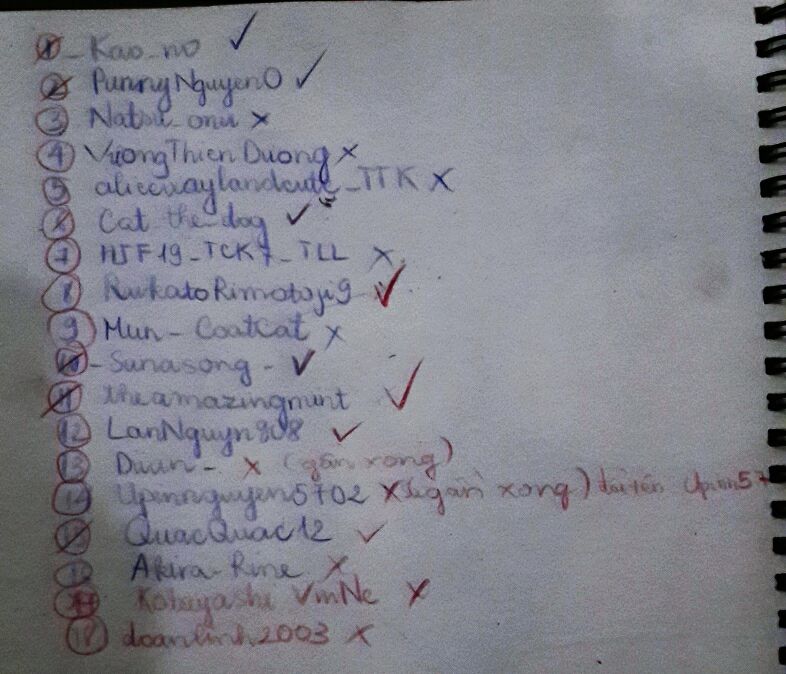 1 _Kao_no ✓
2 PunnyNguyen0 ✓
3 Natsu_onu x
4 VuongThienDuong x
5 _TTK x
6 Cat_the_dog ✓
7 HJF19_TCK7_TLL x
8 RukatoRimotoji9 ✓
9 Mun-CoatCat x
10 -Sunasong- ✓
11 theamazingmint ✓
12 LanNguyn908 ✓
13 Duun- x (gần xong)
14 Upennguyen5702 x (gần xong)
15 QuacQuac12 ✓
Akira-Rine x
Kobuyashi VmNe x
18 doanlinh2003 x